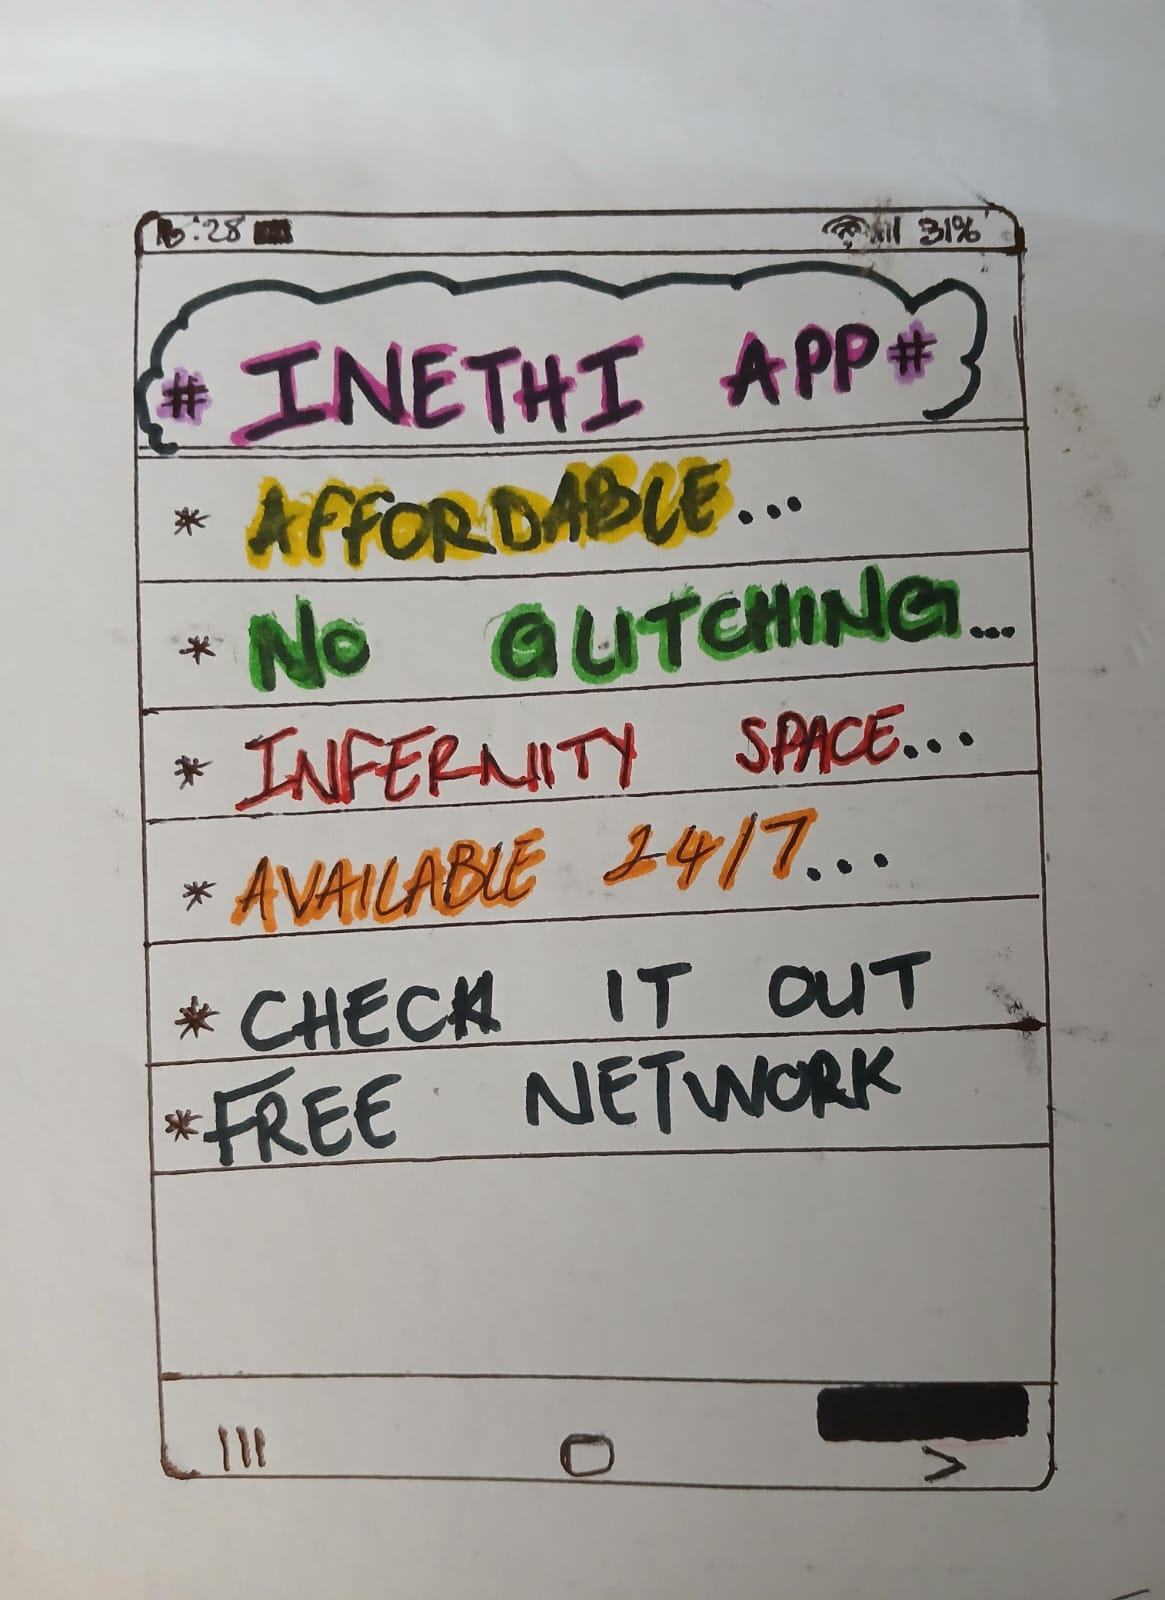 :28 31%
# INETHI APP #
* AFFORDABLE...
* No GLITCHING...
* INFERNITY SPACE...
* AVAILABLE 24/7...
* CHECK IT OUT
* FREE NETWORK